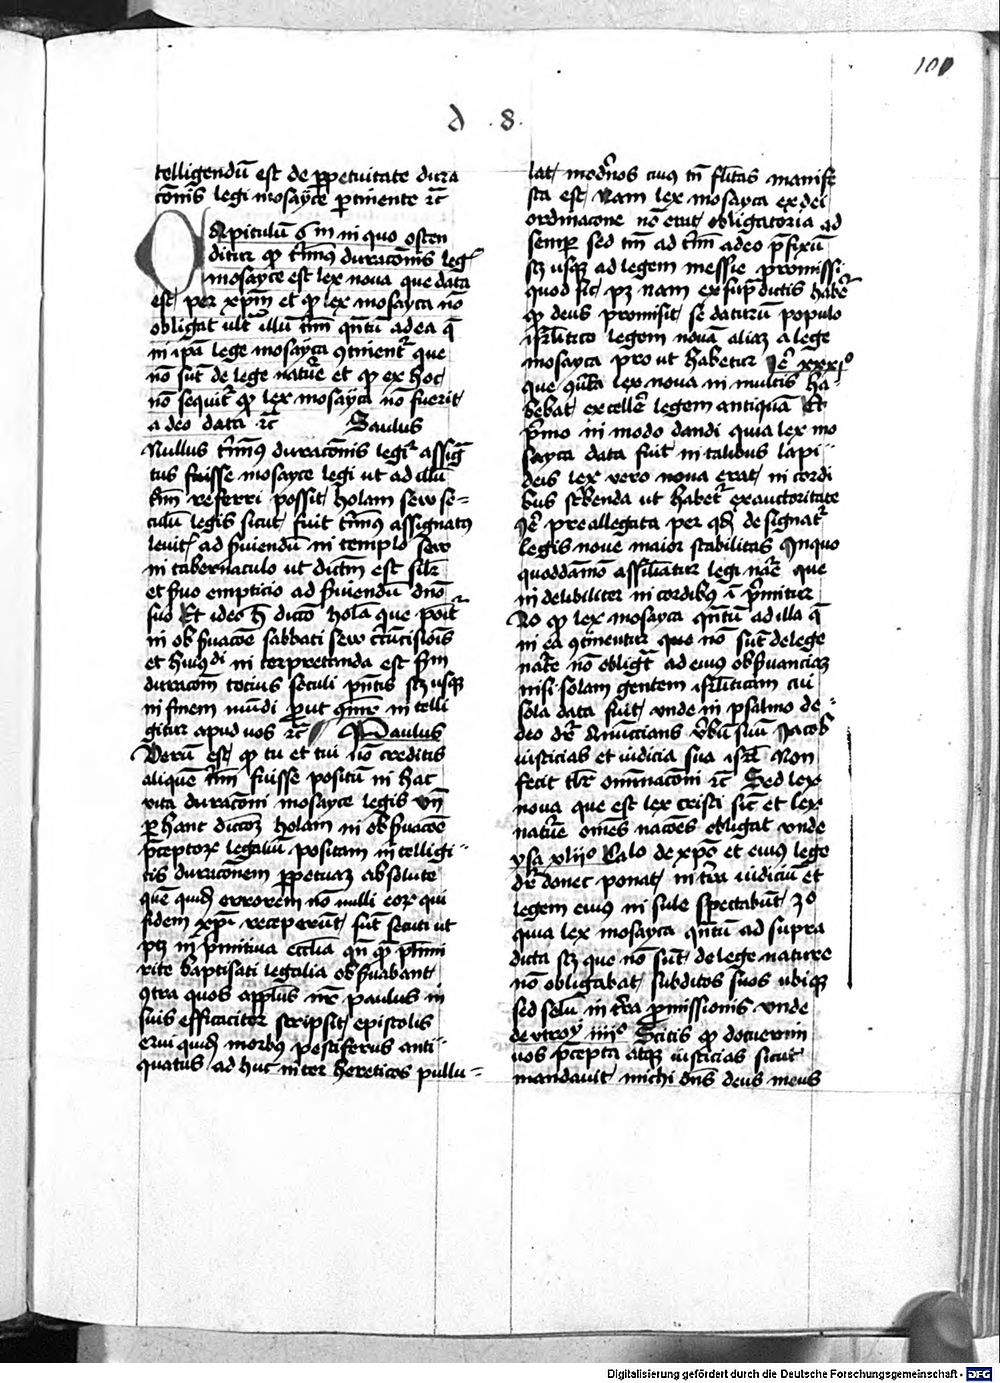 101
d .8.
telligendū est de ꝑpetuitate dura
cōnis legi mosayce ꝑtinente ⁊c̄
Capitulū 6 m in quo osten
ditur ꝙ t̄mīnꝰ duracōnis leg̾
mosayce est lex noua que data
est per xp̄m et ꝙ lex mosayca nō
obligat ult̾ illū t̄mī qn̄tū ad ea q̄
in ip̄a lege mosayca ꝯtinent̾ que
nō sūt de lege nature et ꝙ ex hoc
nō sequit̾ ꝙ lex mosayca nō fuerit
a deo data ⁊c̄ Saulus
Nullus t̄mīnꝰ duracōnis legi assig
tus fuisse mosayce legi ut ad illū
referri possit holam seu se=
culū legis sicut fuit t̄mīnꝰ assignatꝰ
leuit̾ ad s̄uiendū in templo seu
in tabernaculo ut dictm̄ est silr̄
et s̄uo empticio ad s̄uiendū dn̄o
suo Et ideo h̄ dicco holā que poīt̾
in obs̄uacōe sabbati seu c̄rūcisiōis
et huiꝰdi in terpretanda est s̄m
duracōm tocius seculi p̄ntis sꝫ usqꝫ
in finem mūdi ꝓut in telli
gitur apud uos ⁊c̄ Paulus
Verū est ꝙ tu et tui nō creditis
aliquē t̄mī fuisse positū in hac
vita duracōni mosayce legis vn̄
ꝑ hanc diccōꝫ holam in obs̄uacōe
p̄ceptoꝝ legaliū positam in telligi
tis duracōnem ꝑpetuaꝫ absolute
quē quidē errorem nō nulli eoꝝ qui
fidem xp̄i receperūt sūt secuti ut
pꝫ in p̄mitiua ecclīa
rite baptisati legalia obs̄uabant
ꝯtra quos apl̄us nr̄ paulus in
suis efficaciter scripsit epistolis
cui quidē morbꝰ pestiferus anti
quatus ad huc inter hereticos pullu=
lat modn̾os cuiꝰ tn̄ fl̄itas manife
sta est Nam lex mosayca ex dei
ordinacōne nō erat obligatoria ad
semꝑ sed tm̄ ad t̄mī a deo p̄fixū
sꝫ usqꝫ ad legem messie promissi
quod sic pꝫ nam ex sup̄ dictis habet̾
ꝙ deus promisit se daturū populo
isrl̄itico legem nouā aliaꝫ a lege
mosayca pro ut habetur Ie͛ xxxi°
que lex noua in multis ha
bebat excelle͛ legem antiquā Et
p̄mo in modo dandi quia lex mo
sayca data fuit in tabulis lapi
deis lex vero noua erat in cordi
bus sc͛benda ut habet̾ ex auctoritate
Ie͛ preallegata per qd̄ designat̾
legis noue maior stabilitas In quo
quoddāmō assilīatur legi nar̄e que
in delibiliter in cordibꝰ ī p̄mitur
ꝙ lex mosayca qn̄tū ad illa q̄
in ea ꝯtinentur que nō sūt de lege
nar̄e nō obligat̾ ad eius obs̄uanciaꝫ
nisi solam gentem isrl̄iticam cui
sola data fuit vnde in psalmo de=
deo dr̄ Anūccians v̾bū suū Iacob
iusticias et iudicia sua isrl̄ Non
fecit tlr̄ om̄i nacōni ⁊c̄ Sed lex
noua que est lex cristi sic̄ et lex
nature omēs nacōes obligat vnde
ysa xlii° de xp̄o et eius lege
dr̄ donec ponat in t̄ra iudiciū Et
legem eius in sule spectabūt 3°
quia lex mosayca qn̄tū ad supra
dicta sꝫ que nō sūt de lege nature
nō obligabat subditos suos ubiqꝫ
sed solū in t̄ra ꝓmissionis vnde
deutroỹ iiii° Scitis ꝙ docuerim
uos p̄cepta atqꝫ iusticias sicut
mandauit michi dn̄s deus meus
Digitalisierung gefördert durch die Deutsche Forschungsgemeinschaft - DFG